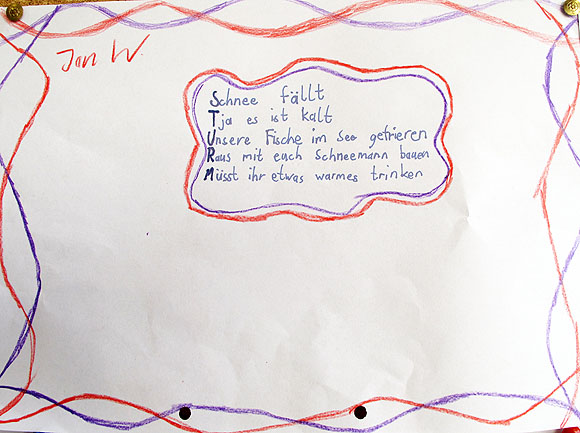 Jan W.
Schnee fällt
Tja es ist kalt
Unsere Fische im See gefrieren
Raus mit euch Schneemann bauen
Müsst ihr etwas warmes trinken